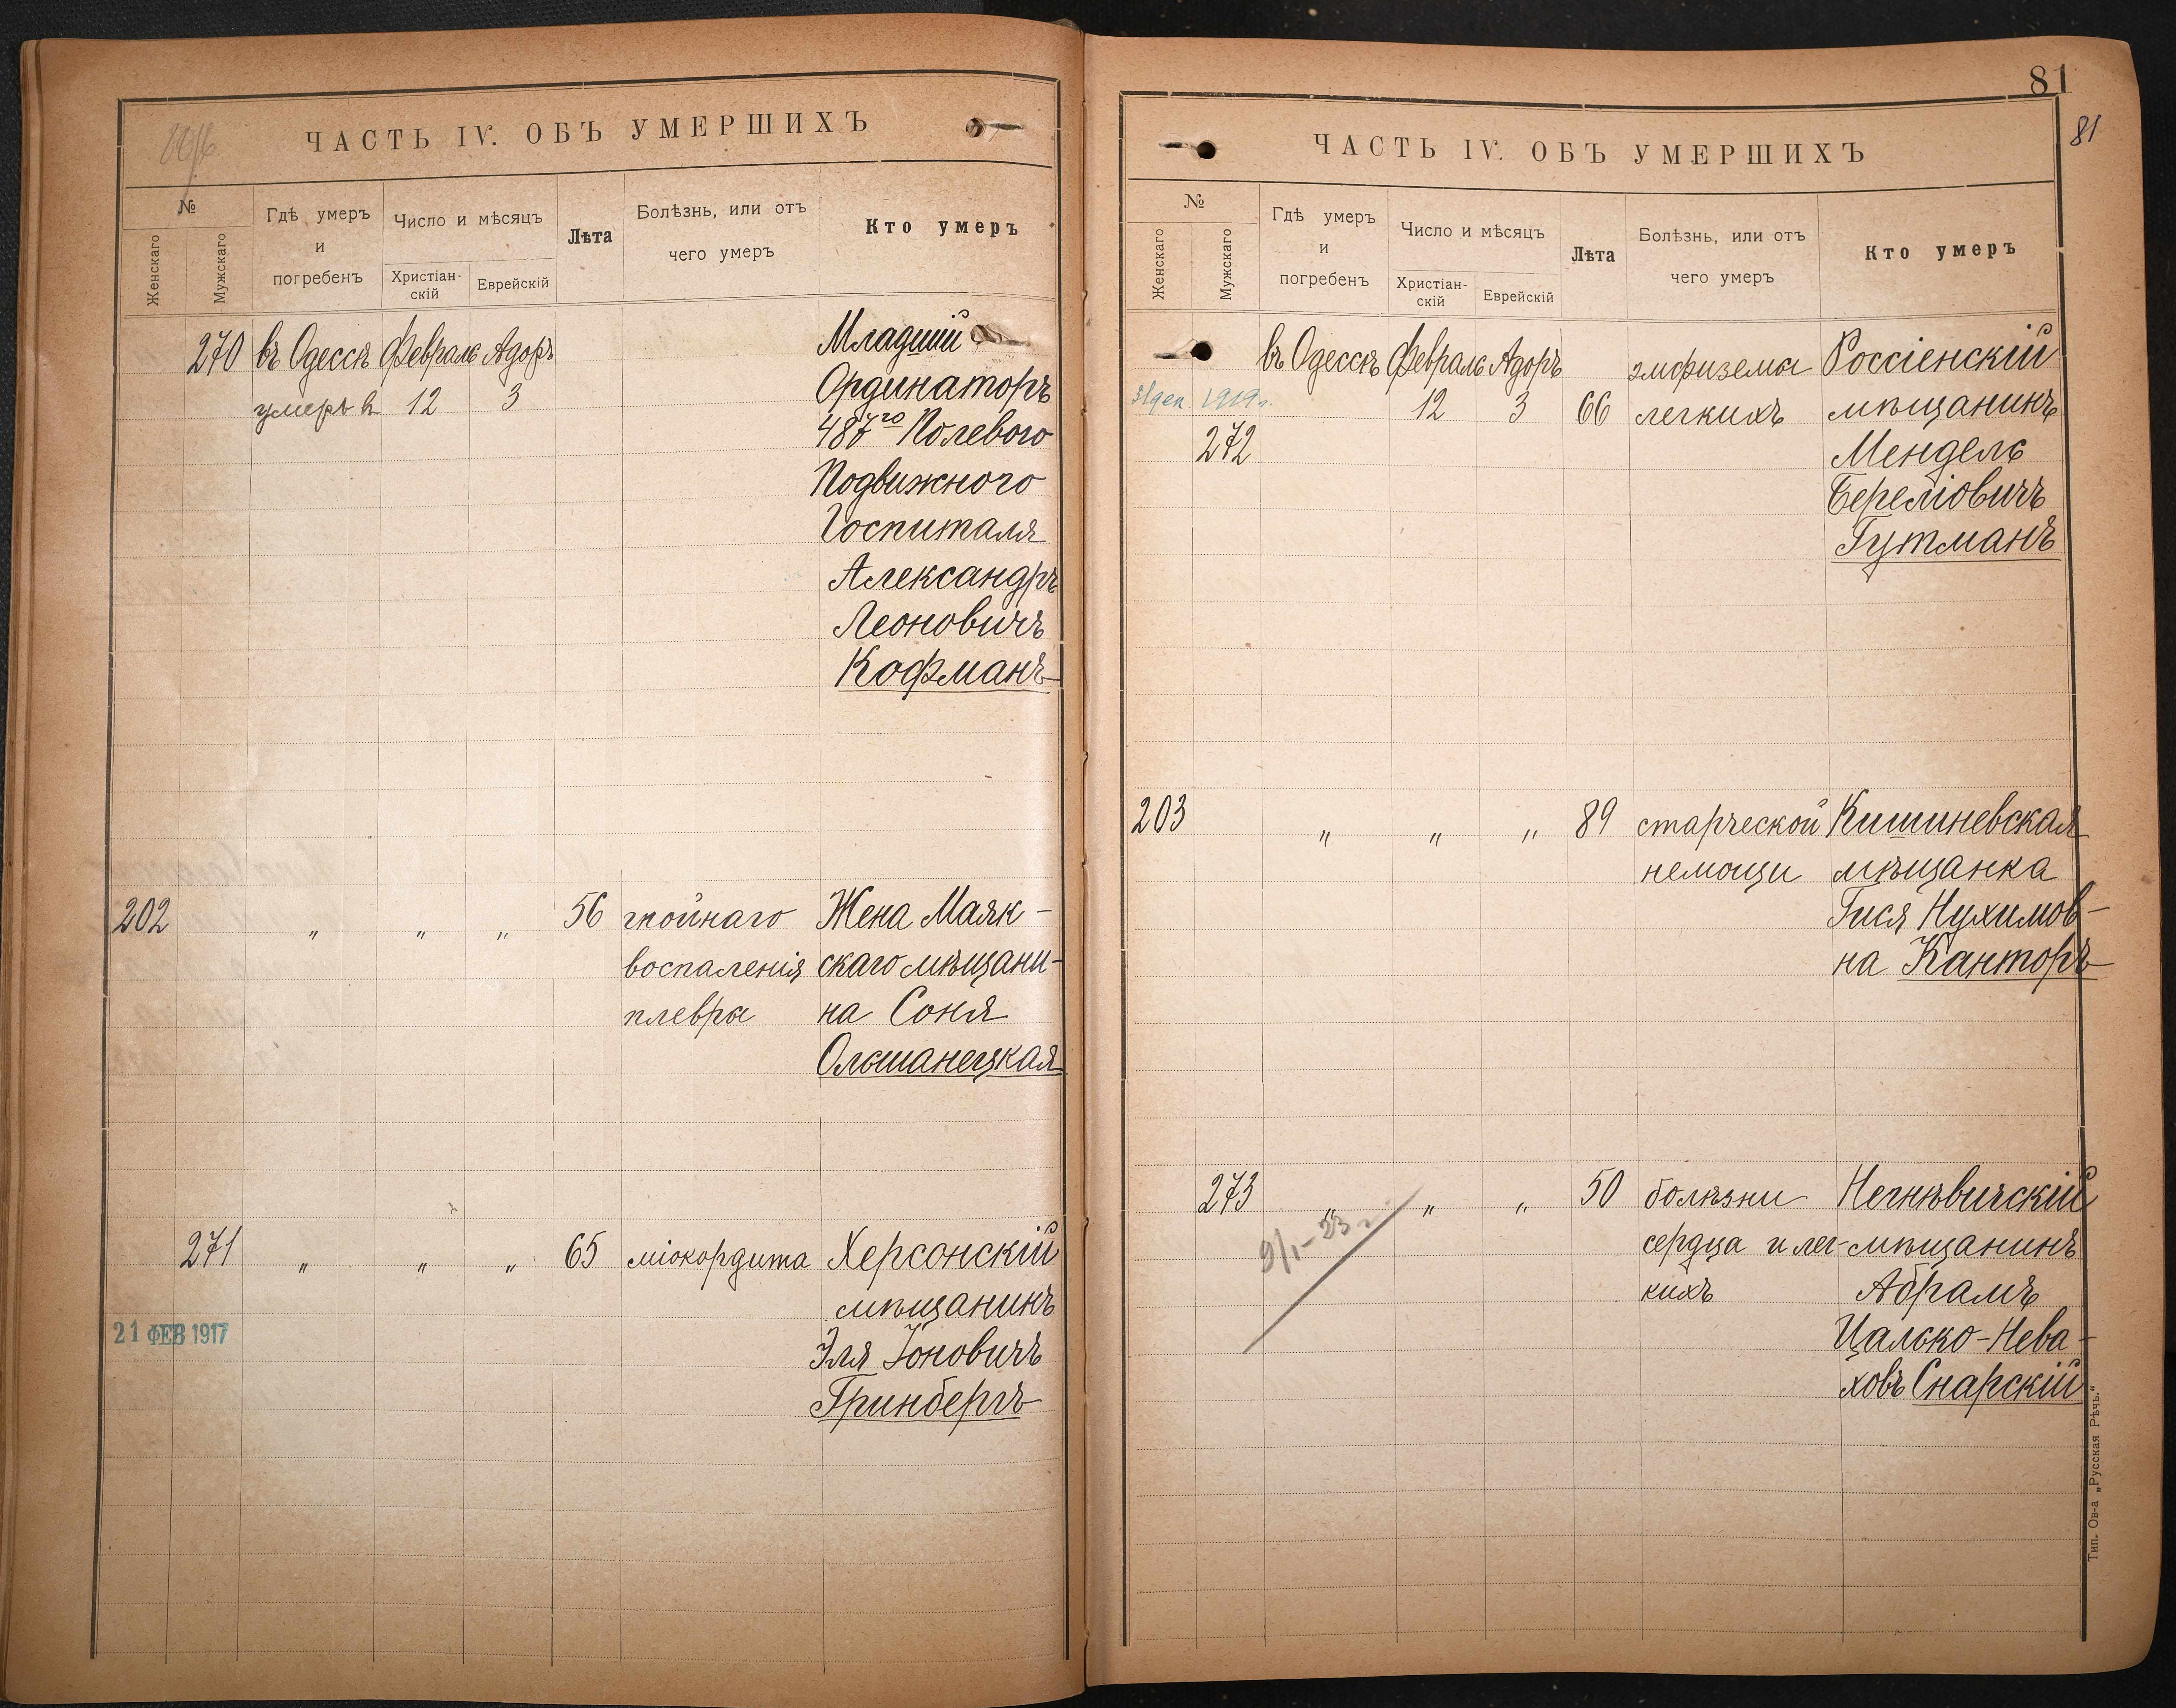 ЧАСТЬ IV. ОБЪ УМЕРШИХЪ
№
Женскаго
Мужскаго
Гдѣ умеръ
и
погребенъ
Число и мѣсяцъ
Христіан-
скій
Еврейскій
Лѣта
Болѣзнь, или отъ
чего умеръ
Кто умеръ
270 въ Одессѣ Февраль Адоръ Младшій
умеръ въ 12 3 Ординаторъ
487го Полевого
Подвижного
Госпиталя
Александръ
Леоновичъ
Кофманъ
202 " " " 56 гнойнаго Жена Маяк-
воспаленія скаго мѣщани-
плевры на Соня
Ольшанецкая
271 " " " 65 міокордита Херсонскій
мѣщанинъ
21 ФЕВ 1917
Эля Іоновичъ
Гринбергъ
81
81
ЧАСТЬ IV. ОБЪ УМЕРШИХЪ
№
Женскаго
Мужскаго
Гдѣ умеръ
и
погребенъ
Число и мѣсяцъ
Христіан-
скій
Еврейскій
Лѣта
Болѣзнь, или отъ
чего умеръ
Кто умеръ
въ Одессѣ Февраль Адоръ эмфизема Россіенскій
1919г. 12 3 66 легкихъ мѣщанинъ
272 Мендель
Береліовичъ
Гутманъ
203 " " " 89 старческой Кишиневская
немощи мѣщанка
Гися Нухимов-
на Канторъ
273 " " " 50 болѣзни Негнѣвичскій
9/I-23 г.
сердца и лег- мѣщанинъ
кихъ Абрамъ
Цалько-Нева-
ховъ Снарскій
Тип. Ов-а „Русская Рѣчь."